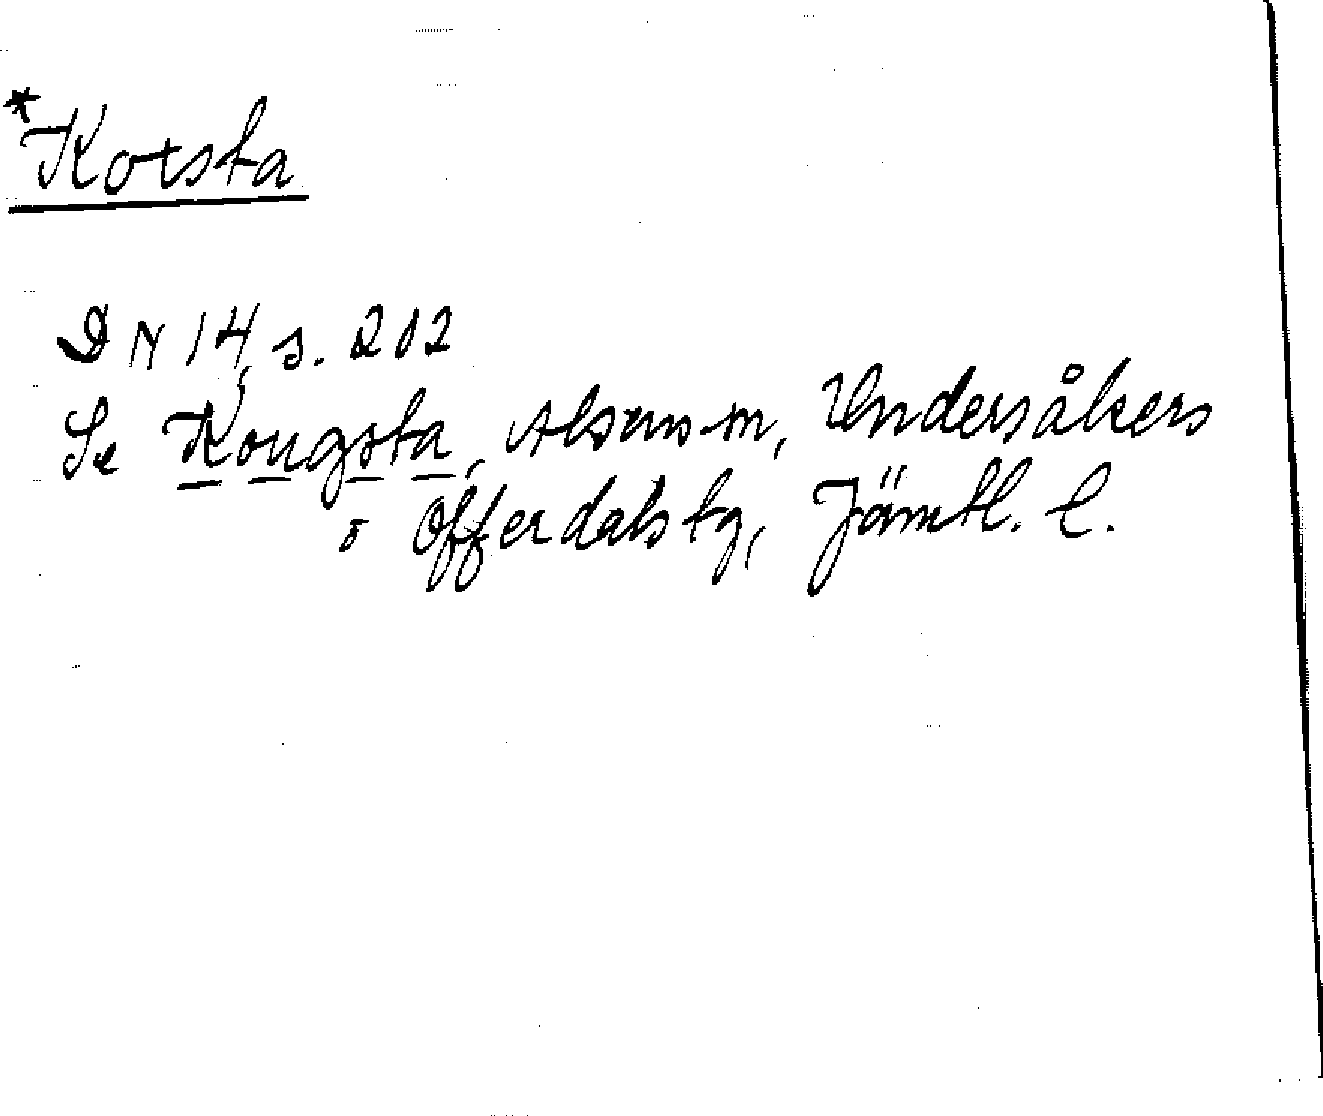 *Kotsta
DN 14, s. 202
Se Kougsta, Alsens sn, Undersåkers
o Offerdals tg, Jämtl. l.